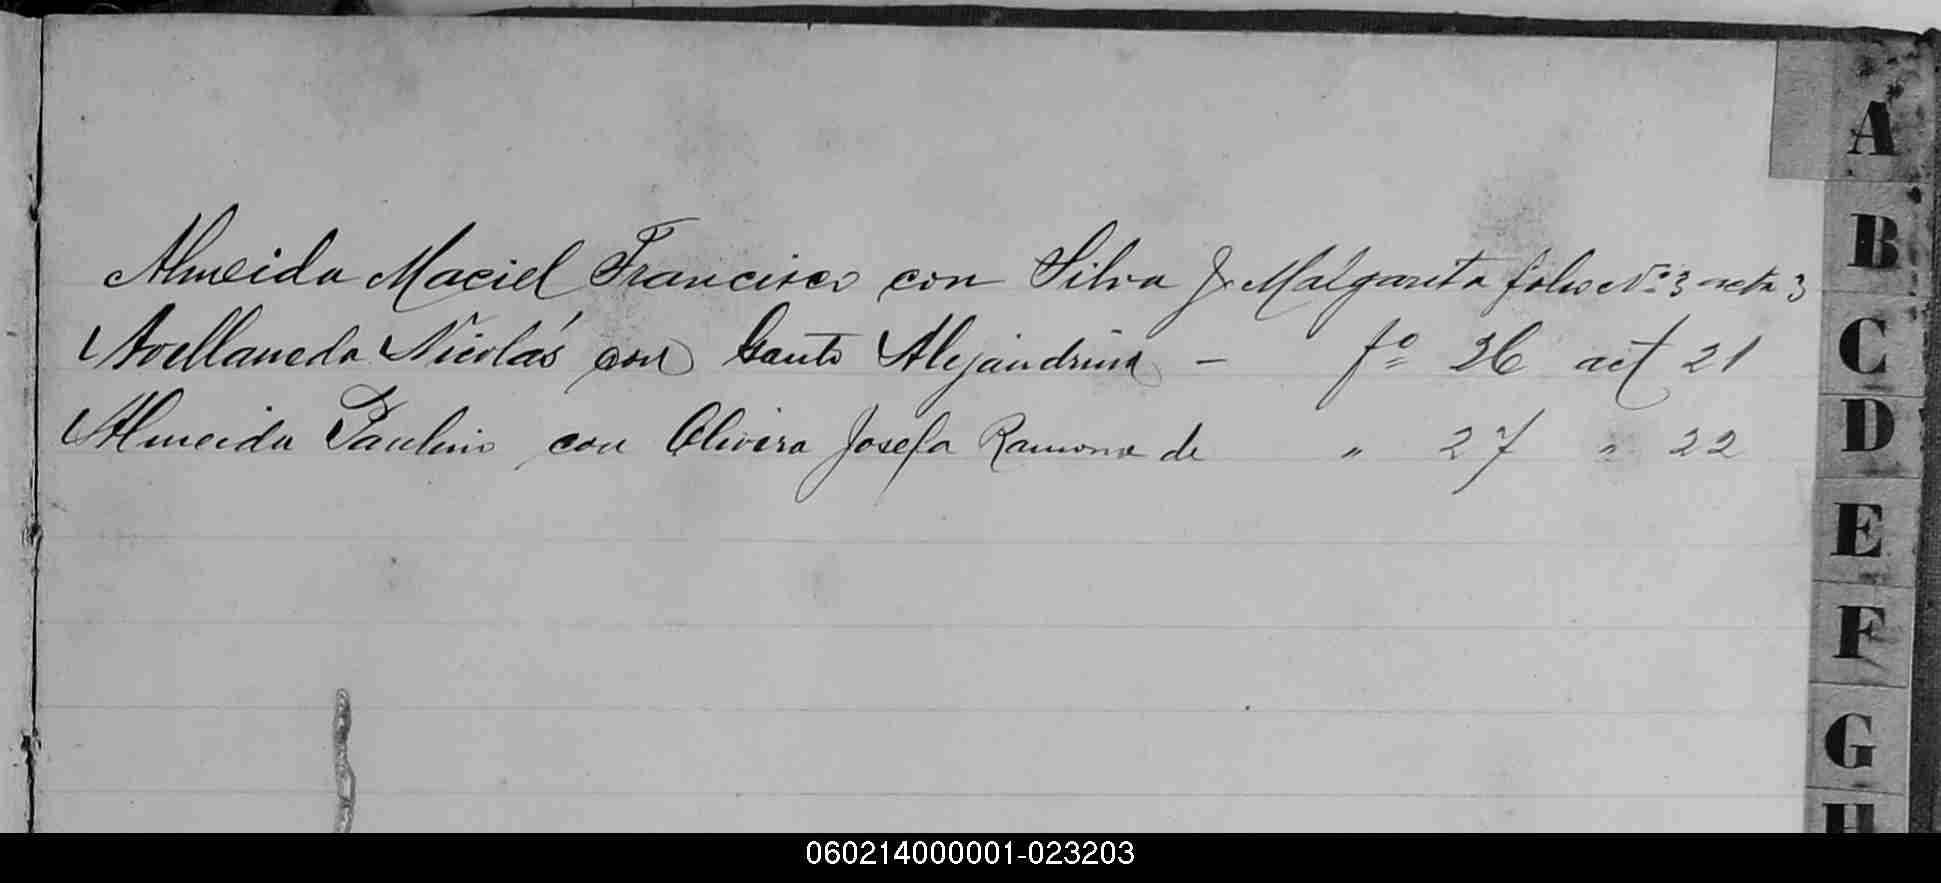 Almeida Maciel Francisco con Silva J. Margarita folio Nº 3 acta 3
Avellaneda Nicolás con Cantº Alejandrina - fº 26 act 21
Almeida Paulino con Olivera Josefa Ramona de " 27 " 22
A
B
C
D
E
F
G
H
060214000001-023203